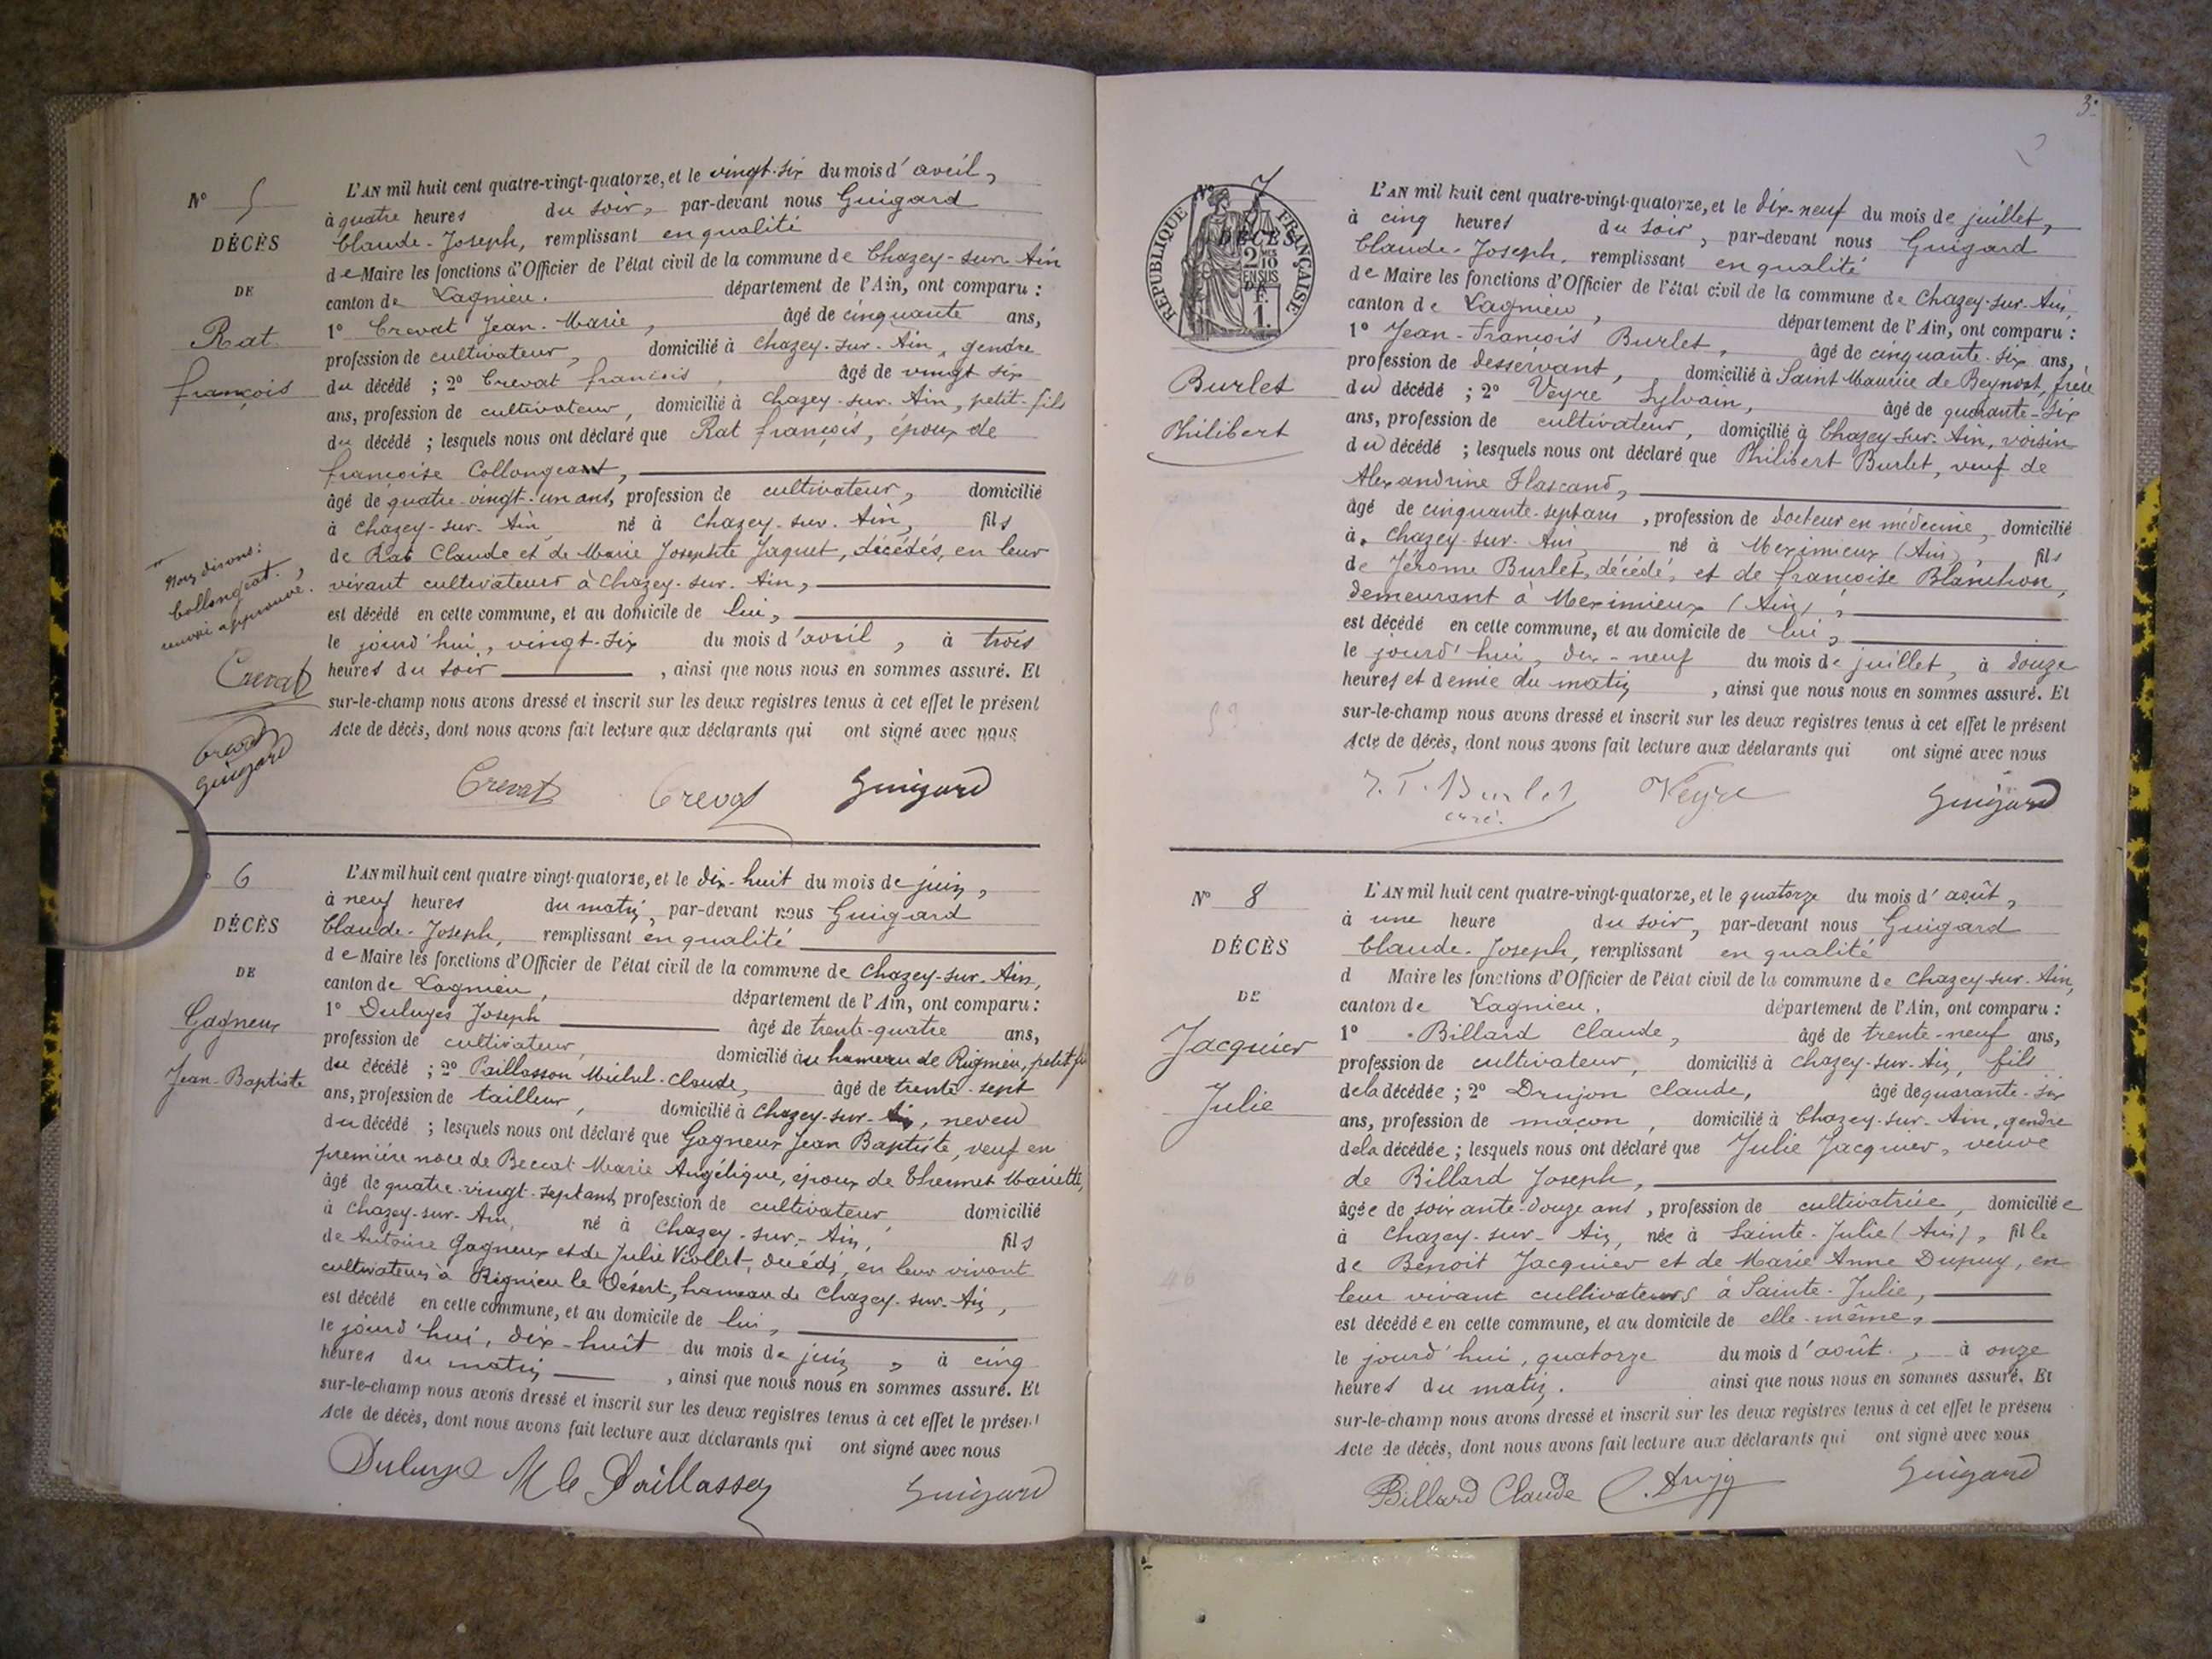 Nº 5
DÉCÈS
DE
Rat
françois
L'AN mil huit cent quatre-vingt-quatorze, et le vingt-six du mois d'avril,
à quatre heures du soir, par-devant nous Guigard
Claude-Joseph, remplissant en qualité
de Maire les fonctions d'Officier de l'état civil de la commune de Chazey-sur-Ain
canton de Lagnieu. département de l'Ain, ont comparu :
1º Crevat Jean-Marie, âgé de cinquante ans,
profession de cultivateur, domicilié à Chazey-sur-Ain, gendre
du décédé ; 2º Crevat françois, âgé de vingt six
ans, profession de cultivateur, domicilié à Chazey-sur-Ain, petit-fils
du décédé ; lesquels nous ont déclaré que Rat françois, époux de
françoise Collongeat,
âgé de quatre-vingt-un ans, profession de cultivateur, domicilié
à Chazey-sur-Ain né à Chazey-sur-Ain, fils
de Rat Claude et de Marie Josephte Jaquet, décédés, en leur
vivant cultivateurs à Chazey-sur-Ain,
est décédé en cette commune, et au domicile de lui,
le jourd'hui, vingt-six du mois d'avril, à trois
heures du soir, ainsi que nous nous en sommes assuré. Et
sur-le-champ nous avons dressé et inscrit sur les deux registres tenus à cet effet le présent
Acte de décès, dont nous avons fait lecture aux déclarants qui ont signé avec nous
Nous disons :
Collongeat.
approuvé.
Crevat
Crevat
Guigard
Crevat Crevat Guigard
6
DÉCÈS
DE
Gagneux
Jean-Baptiste
L'AN mil huit cent quatre-vingt-quatorze, et le dix-huit du mois de juin,
à neuf heures du matin, par-devant nous Guigard
Claude-Joseph, remplissant en qualité
de Maire les fonctions d'Officier de l'état civil de la commune de Chazey-sur-Ain,
canton de Lagnieu, département de l'Ain, ont comparu :
1º Joseph âgé de trente-quatre ans,
profession de cultivateur, domicilié au hameau de Rignieu, petit fi
du décédé ; 2º Paillasson Michel-Claude, âgé de trente-sept
ans, profession de tailleur, domicilié à Chazey-sur-Ain, neveu
du décédé ; lesquels nous ont déclaré que Gagneux Jean Baptiste, veuf en
première noce de Beccat Marie Angélique, époux de Thermet Mariette,
âgé de quatre-vingt-sept ans, profession de cultivateur, domicilié
à Chazey-sur-Ain, né à Chazey-sur-Ain, fils
de Antoine Gagneux et de Julie Viollet, décédés, en leur vivant
cultivateurs à Rignieu le Désert, hameau de Chazey-sur-Ain,
est décédé en cette commune, et au domicile de lui,
le jourd'hui, dix-huit du mois de juin, à cinq
heures du matin, ainsi que nous nous en sommes assuré. Et
sur-le-champ nous avons dressé et inscrit sur les deux registres tenus à cet effet le présent
Acte de décès, dont nous avons fait lecture aux déclarants qui ont signé avec nous
M Cle Paillasson Guigard
3
Nº 7
RÉPUBLIQUE FRANÇAISE
DÉCÈS
2/10
EN SUS
F.
1.
Burlet
Philibert
L'AN mil huit cent quatre-vingt-quatorze, et le dix-neuf du mois de juillet,
à cinq heures du soir, par-devant nous Guigard
Claude-Joseph, remplissant en qualité
de Maire les fonctions d'Officier de l'état civil de la commune de Chazey-sur-Ain,
canton de Lagnieu, département de l'Ain, ont comparu :
1º Jean-François Burlet, âgé de cinquante-six ans,
profession de desservant, domicilié à Saint Maurice de Beynost, frère
du décédé ; 2º Veyre Sylvain, âgé de quarante-six
ans, profession de cultivateur, domicilié à Chazey-sur-Ain, voisin
du décédé ; lesquels nous ont déclaré que Philibert Burlet, veuf de
Alexandrine
âgé de cinquante-sept ans, profession de docteur en médecine, domicilié
à Chazey-sur-Ain, né à Meximieux (Ain), fils
de Jérome Burlet, décédé, et de françoise Blanchon,
demeurant à Meximieux (Ain),
est décédé en cette commune, et au domicile de lui,
le jourd'hui, dix-neuf du mois de juillet, à douze
heures et demie du matin, ainsi que nous nous en sommes assuré. Et
sur-le-champ nous avons dressé et inscrit sur les deux registres tenus à cet effet le présent
Acte de décès, dont nous avons fait lecture aux déclarants qui ont signé avec nous
J. F. Burlet Veyre Guigard
curé.
Nº 8
DÉCÈS
DE
Jacquier
Julie
L'AN mil huit cent quatre-vingt-quatorze, et le quatorze du mois d'août,
à une heure du soir, par-devant nous Guigard
Claude-Joseph, remplissant en qualité
d Maire les fonctions d'Officier de l'état civil de la commune de Chazey-sur-Ain,
canton de Lagnieu. département de l'Ain, ont comparu :
1º Billard Claude, âgé de trente-neuf ans,
profession de cultivateur, domicilié à Chazey-sur-Ain, fils
de la décédée ; 2º Drujon Claude, âgé de quarante-six
ans, profession de maçon, domicilié à Chazey-sur-Ain, gendre
de la décédée ; lesquels nous ont déclaré que Julie Jacquier, veuve
de Billard Joseph,
âgée de soixante-douze ans, profession de cultivatrice, domiciliée
à Chazey-sur-Ain, née à Sainte-Julie (Ain), fille
de Benoit Jacquier et de Marie Anne Dupuy, en
leur vivant cultivateurs à Sainte-Julie,
est décédée en cette commune, et au domicile de elle-même,
le jourd'hui, quatorze du mois d'août, à onze
heures du matin. ainsi que nous nous en sommes assuré. Et
sur-le-champ nous avons dressé et inscrit sur les deux registres tenus à cet effet le présent
Acte de décès, dont nous avons fait lecture aux déclarants qui ont signé avec nous
Billard Claude Guigard